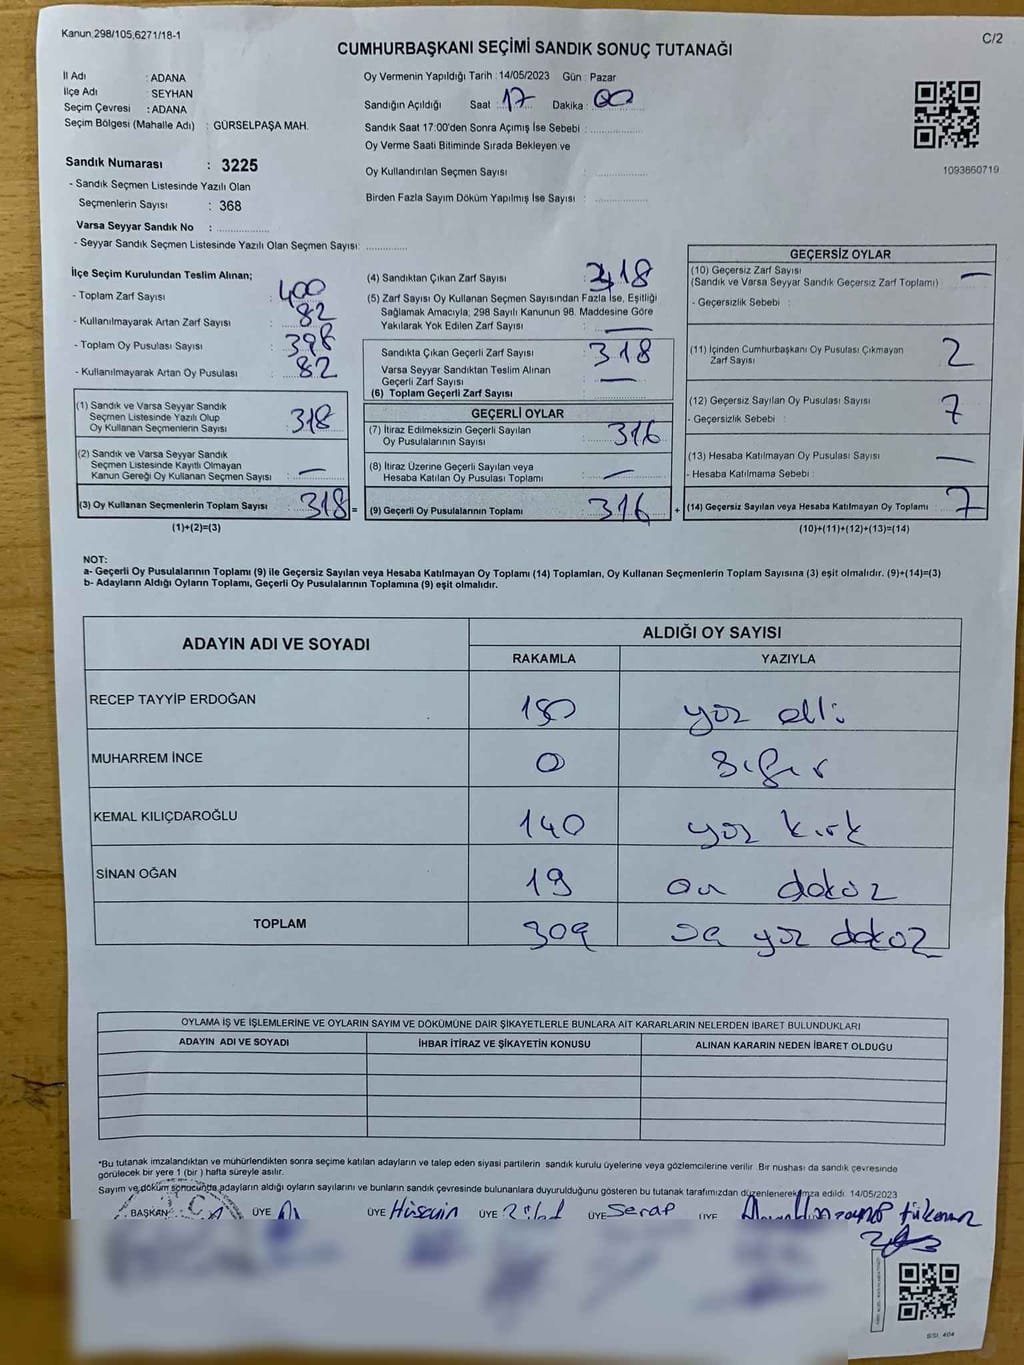 Kanun 298/105,6271/18-1
C/2
CUMHURBAŞKANI SEÇİMİ SANDIK SONUÇ TUTANAĞI
İl Adı : ADANA
İlçe Adı : SEYHAN
Seçim Çevresi : ADANA
Seçim Bölgesi (Mahalle Adı) : GÜRSELPAŞA MAH.
Sandık Numarası : 3225
- Sandık Seçmen Listesinde Yazılı Olan
Seçmenlerin Sayısı : 368
Varsa Seyyar Sandık No :
- Seyyar Sandık Seçmen Listesinde Yazılı Olan Seçmen Sayısı:
Oy Vermenin Yapıldığı Tarih : 14/05/2023 Gün : Pazar
Sandığın Açıldığı Saat : 17 Dakika : 00
Sandık Saat 17:00'den Sonra Açımış İse Sebebi :
Oy Verme Saati Bitiminde Sırada Bekleyen ve
Oy Kullandırılan Seçmen Sayısı :
Birden Fazla Sayım Döküm Yapılmış İse Sayısı :
1093660719
İlçe Seçim Kurulundan Teslim Alınan;
- Toplam Zarf Sayısı : 400
- Kullanılmayarak Artan Zarf Sayısı : 82
- Toplam Oy Pusulası Sayısı : 398
- Kullanılmayarak Artan Oy Pusulası : 82
(1) Sandık ve Varsa Seyyar Sandık
Seçmen Listesinde Yazılı Olup
Oy Kullanan Seçmenlerin Sayısı : 318
(2) Sandık ve Varsa Seyyar Sandık
Seçmen Listesinde Kayıtlı Olmayan
Kanun Gereği Oy Kullanan Seçmen Sayısı : —
(3) Oy Kullanan Seçmenlerin Toplam Sayısı : 318 =
(1)+(2)=(3)
(4) Sandıktan Çıkan Zarf Sayısı : 318
(5) Zarf Sayısı Oy Kullanan Seçmen Sayısından Fazla İse, Eşitliği
Sağlamak Amacıyla; 298 Sayılı Kanunun 98. Maddesine Göre
Yakılarak Yok Edilen Zarf Sayısı : —
Sandıkta Çıkan Geçerli Zarf Sayısı : 318
Varsa Seyyar Sandıktan Teslim Alınan
Geçerli Zarf Sayısı : —
(6) Toplam Geçerli Zarf Sayısı :
GEÇERLİ OYLAR
(7) İtiraz Edilmeksizin Geçerli Sayılan
Oy Pusulalarının Sayısı : 316
(8) İtiraz Üzerine Geçerli Sayılan veya
Hesaba Katılan Oy Pusulası Toplamı : —
(9) Geçerli Oy Pusulalarının Toplamı : 316 +
GEÇERSİZ OYLAR
(10) Geçersiz Zarf Sayısı : —
(Sandık ve Varsa Seyyar Sandık Geçersiz Zarf Toplamı)
- Geçersizlik Sebebi :
(11) İçinden Cumhurbaşkanı Oy Pusulası Çıkmayan
Zarf Sayısı : 2
(12) Geçersiz Sayılan Oy Pusulası Sayısı : 7
- Geçersizlik Sebebi :
(13) Hesaba Katılmayan Oy Pusulası Sayısı : —
- Hesaba Katılmama Sebebi :
(14) Geçersiz Sayılan veya Hesaba Katılmayan Oy Toplamı : 7
(10)+(11)+(12)+(13)=(14)
NOT:
a- Geçerli Oy Pusulalarının Toplamı (9) ile Geçersiz Sayılan veya Hesaba Katılmayan Oy Toplamı (14) Toplamları, Oy Kullanan Seçmenlerin Toplam Sayısına (3) eşit olmalıdır. (9)+(14)=(3)
b- Adayların Aldığı Oyların Toplamı, Geçerli Oy Pusulalarının Toplamına (9) eşit olmalıdır.
ADAYIN ADI VE SOYADI ALDIĞI OY SAYISI
RAKAMLA YAZIYLA
RECEP TAYYİP ERDOĞAN 150 yüz elli
MUHARREM İNCE 0 sıfır
KEMAL KILIÇDAROĞLU 140 yüz kırk
SİNAN OĞAN 19 on dokuz
TOPLAM 309 yüz dokuz
OYLAMA İŞ VE İŞLEMLERİNE VE OYLARIN SAYIM VE DÖKÜMÜNE DAİR ŞİKAYETLERLE BUNLARA AİT KARARLARIN NELERDEN İBARET BULUNDUKLARI
ADAYIN ADI VE SOYADI İHBAR İTİRAZ VE ŞİKAYETİN KONUSU ALINAN KARARIN NEDEN İBARET OLDUĞU
*Bu tutanak imzalandıktan ve mühürlendikten sonra seçime katılan adayların ve talep eden siyasi partilerin sandık kurulu üyelerine veya gözlemcilerine verilir. Bir nüshası da sandık çevresinde
görülecek bir yere 1 (bir) hafta süreyle asılır.
Sayım ve döküm sonucunda adayların aldığı oyların sayılarını ve bunların sandık çevresinde bulunanlara duyurulduğunu gösteren bu tutanak tarafımızdan düzenlenerek imza edildi. 14/05/2023
BAŞKAN ÜYE ÜYE Hüseyin ÜYE ÜYE Serap ÜYE